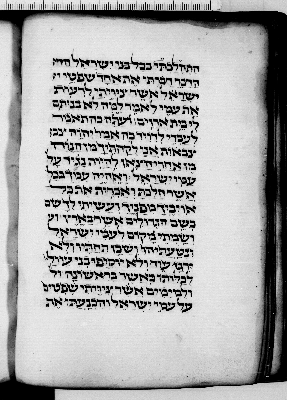 התהלכתי בכל בני ישראל
הדבר דברתי את אחד שפטי
ישראל אשר צויתי לרעות
את עמי לאמר למה לא בניתם
לי בית ארזים ועתה כה תאמר
לעבדי לדויד כה אמר יהוה
צבאות אני לקחתיך מן הנוה
מן אחרי הצאן להיות נגיד על
עמי ישראל ואהיה עמך בכל
אשר הלכת ואכרית את כל
אויביך מפניך ועשיתי לך שם
כשם הגדולים אשר בארץ
ושמתי מקום לעמי ישראל
ונטעתיהו ושכן תחתיו ולא
ירגז עוד ולא יוסיפו בני עולה
לבלתו כאשר בראשונה
ולמימים אשר צויתי שפטים
על עמי ישראל והכנעתי את